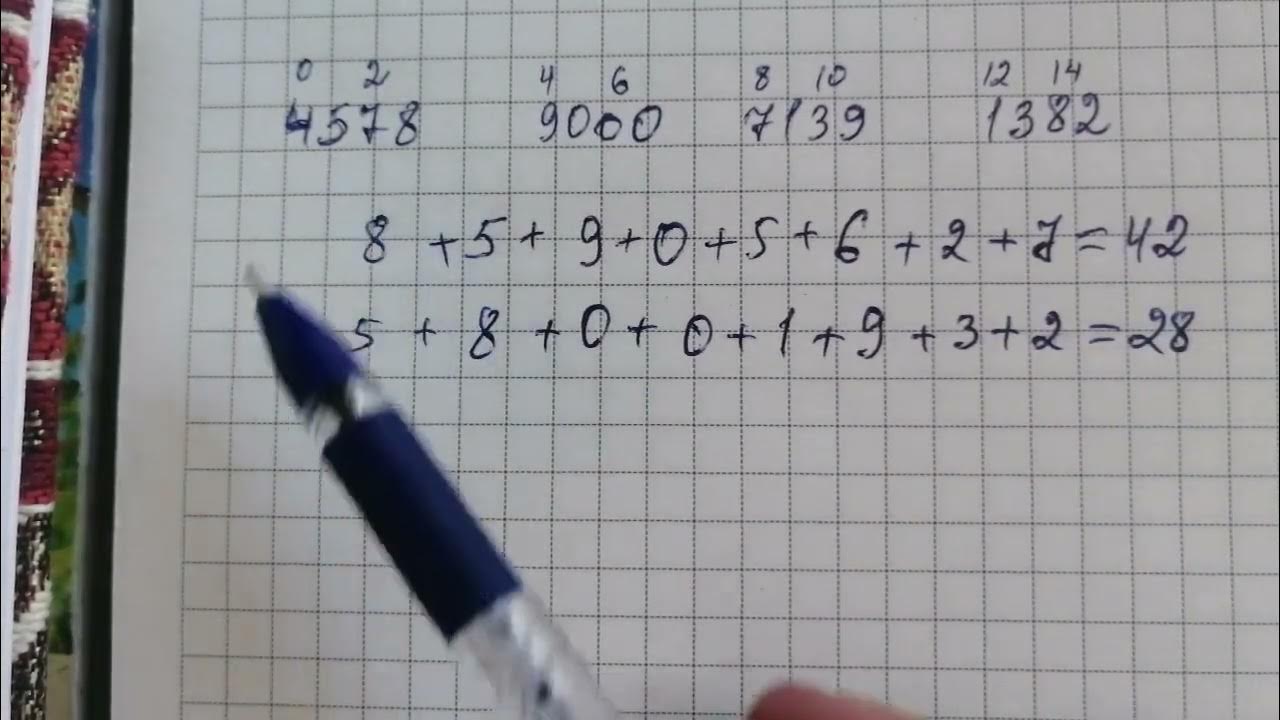 0 2 4 6 8 10 12 14
4578 9000 7139 1382
8 + 5 + 9 + 0 + 5 + 6 + 2 + 7 = 42
5 + 8 + 0 + 0 + 1 + 9 + 3 + 2 = 28